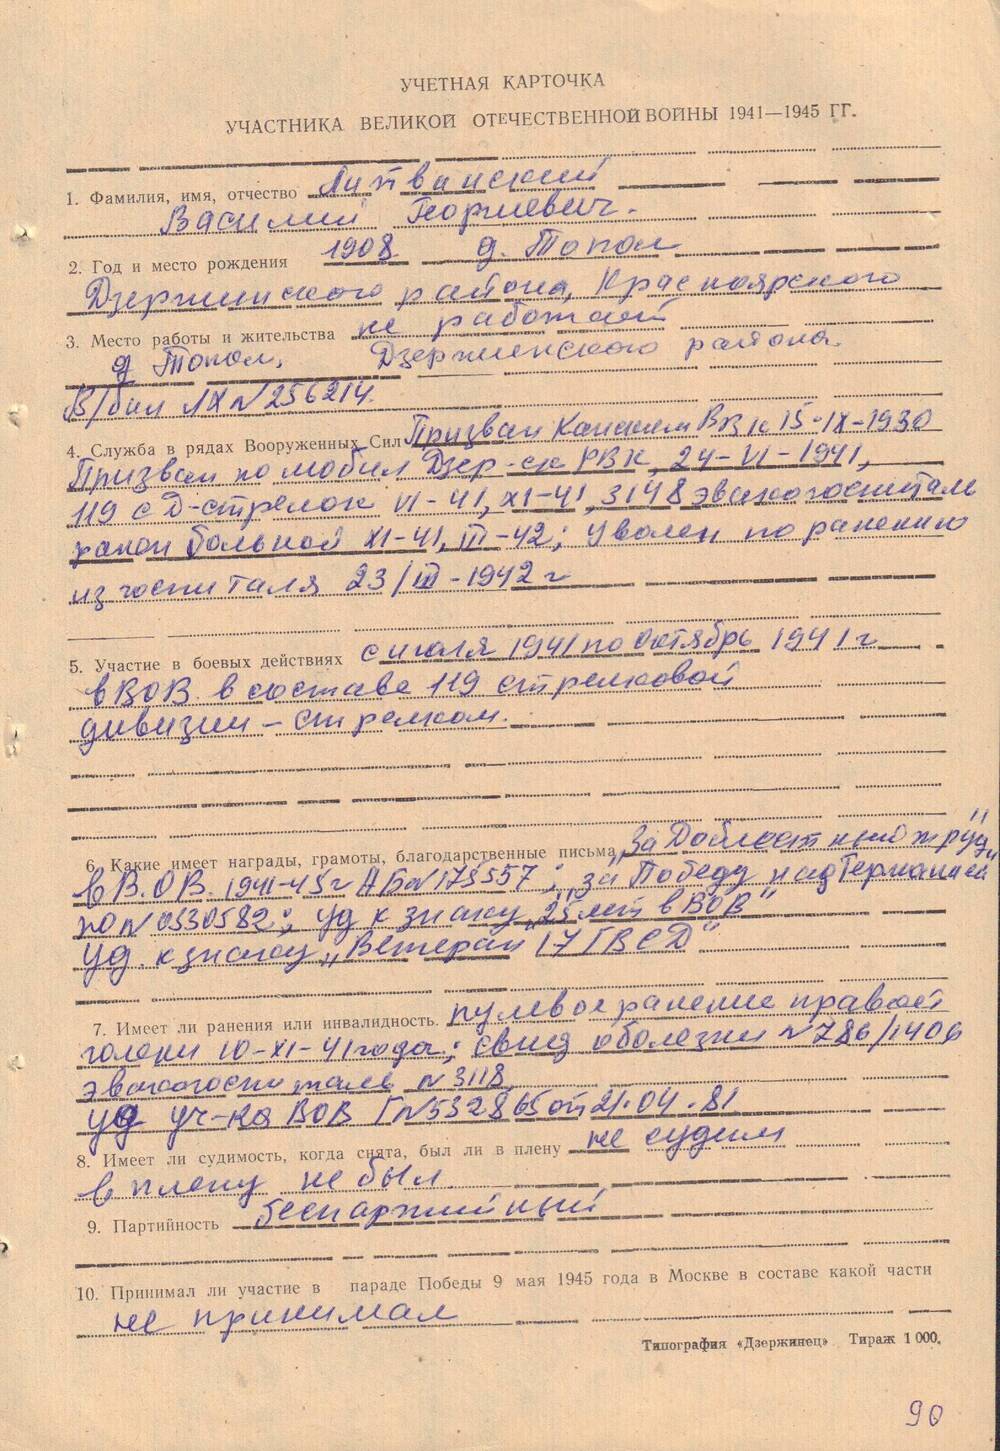 УЧЕТНАЯ КАРТОЧКА
УЧАСТНИКА ВЕЛИКОЙ ОТЕЧЕСТВЕННОЙ ВОЙНЫ 1941—1945 ГГ.
1. Фамилия, имя, отчество Литвинский
Василий Георгиевич.
2. Год и место рождения 1908 д. Топол
Дзержинского района, Красноярского
3. Место работы и жительства не работает
д Топол, Дзержинского района.
В/бил ЛХ N 256214.
4. Служба в рядах Вооруженных Сил Призван Канским 15-IX-1930
Призван по мобил Дзер-ск РВК, 24-VI-1941,
119 с Д-стрелок VI-41, XI-41, 3148 эвакогоспиталь
больной XI-41, III-42; Уволен по ранению
из госпиталя 23/III-1942 г
5. Участие в боевых действиях с июля 1941 по октябрь 1941 г
в ВОВ. в составе 119 стрелковой
дивизии - стрелком.
6. Какие имеет награды, грамоты, благодарственные письма „За Доблестный труд"
в В.О.В. 1941-45 г АБ N 175557; „за Победу над Германией"
N 0530582; уд к знаку „25 лет в ВОВ"
Уд. к знаку „Ветеран 17 ГВСД"
7. Имеет ли ранения или инвалидность. пулевое ранение правой
голени 10-XI-41 года; свид о болезни N 786/1406
эвакогоспиталь N 3118
Уд уч-ка ВОВ Г N 532865 от 21.04.81
8. Имеет ли судимость, когда снята, был ли в плену не судим
в плену не был.
9. Партийность беспартийный
10. Принимал ли участие в параде Победы 9 мая 1945 года в Москве в составе какой части
не принимал
Типография «Дзержинец» Тираж 1 000.
90